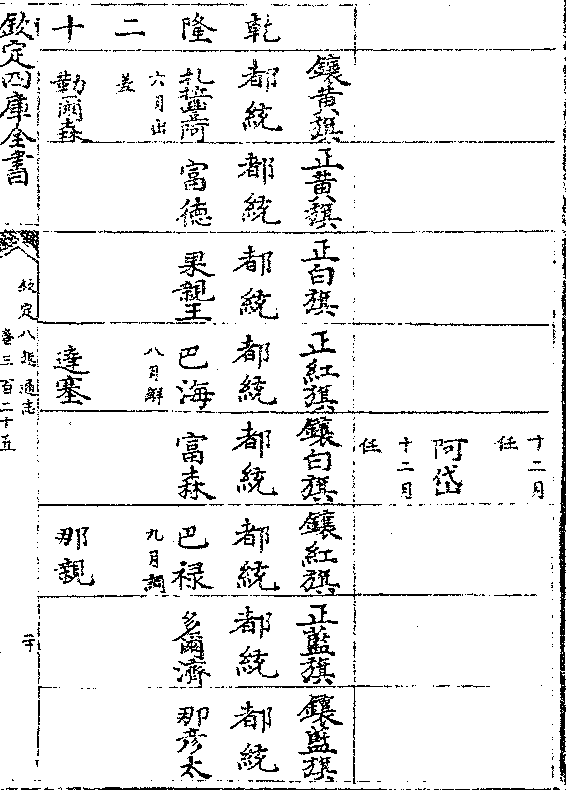 十二月
任
阿岱
十二月
任
乾隆二十
鑲黃旗
都統
六月出
差
勒爾森
正黃旗
都統
富德
正白旗
都統
果親王
正紅旗
都統
巴海
八月解
達塞
鑲白旗
都統
富森
鑲紅旗
都統
巴祿
九月調
那親
正藍旗
都統
多爾濟
鑲藍旗
都統
那彥太
欽定四庫全書
欽定八旗通志
卷三百二十五